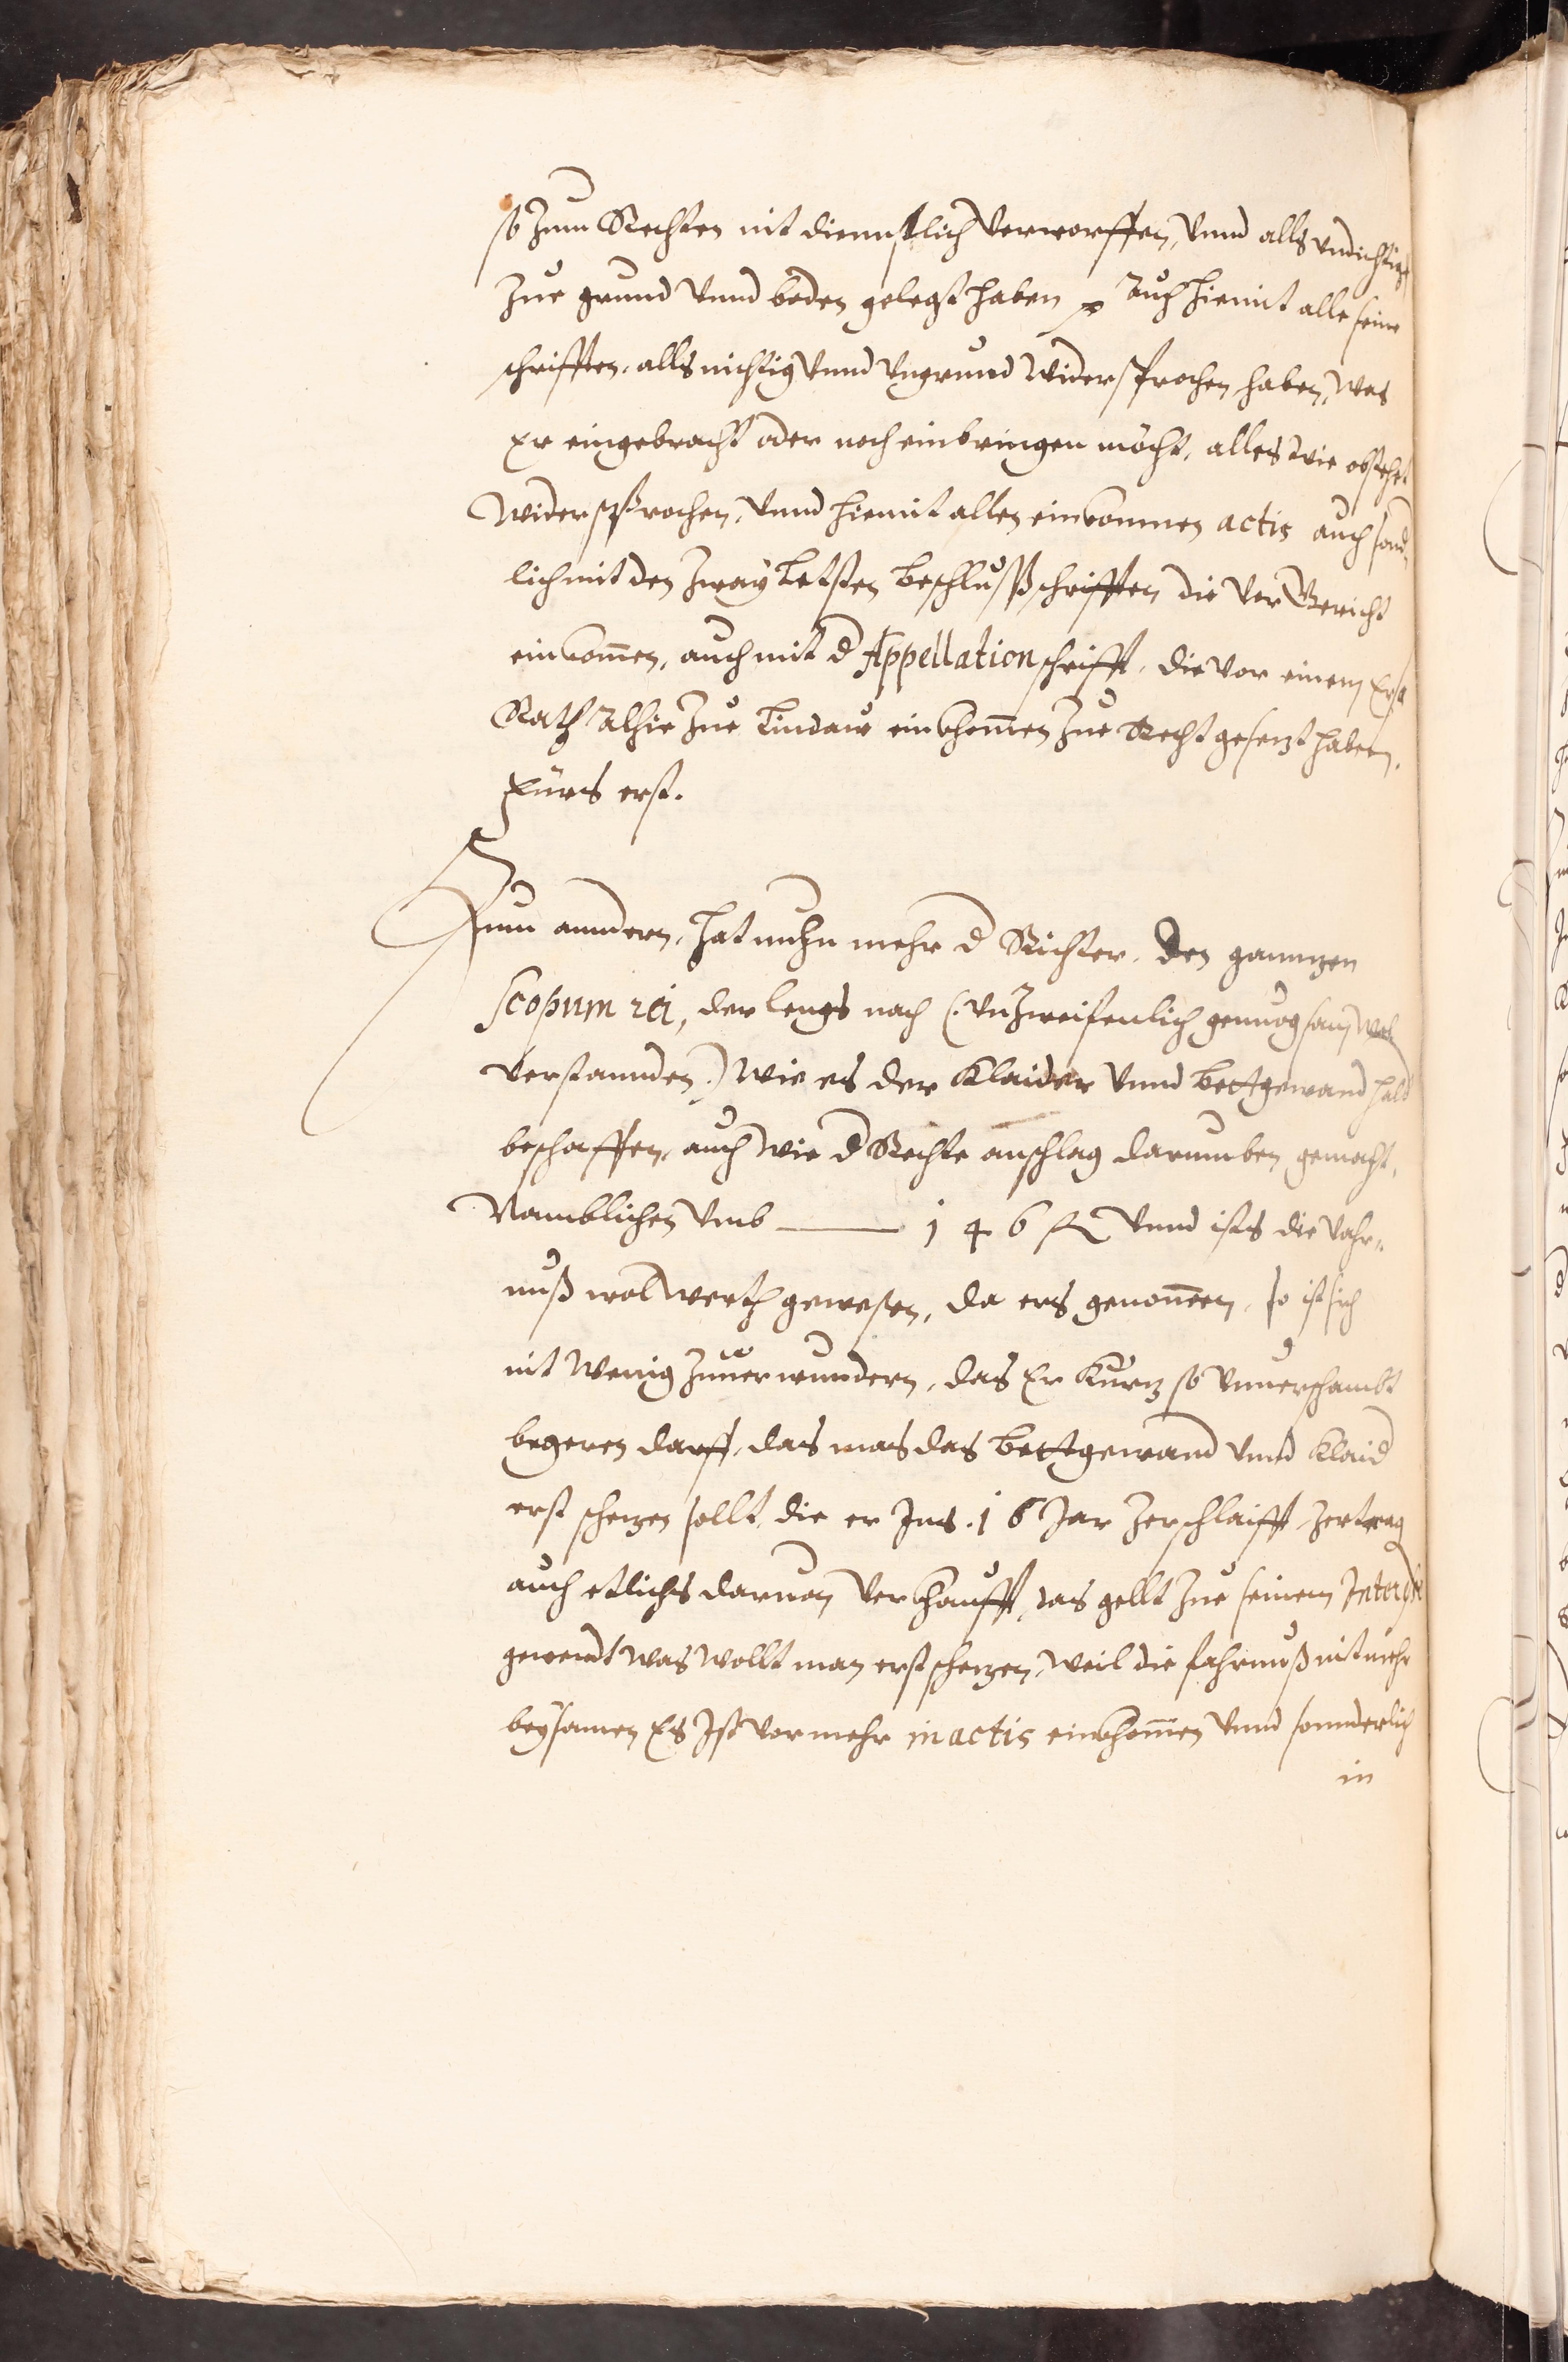 so Zum Rechten nit diennstlich verworffen, vnnd alls vndichtigs
Zue grund vnnd boden gelegt haben auch hiemit alle seine
schrifften, alls nichtig vnnd vngrund widersprochen haben, was
Er eingebracht oder noch einbringen möcht, alles wie obstehet
widersprochen, vnnd hiemit allen einkommen actis auch sond-
lich mit den Zway Letsten beschlußschrifften die vor Gericht
einkomen, auch mit d Appellation schrifft, die vor einem Ers
Rath alhie Zue Lindaw einkhomen Zue Recht gesezt haben.
Fürs erst.
Zum anndern, hat nuhn mehr d Richter, den ganntzen
scopum rei, der lengs nach (: vnzweifenlich genuogsam wol
verstannden:) wie es der Klaider vnnd bettgewand halb
beschaffen, auch wie d Rechte anschlag darumben gemacht,
Namblichen vmb 146 fl vnnd ists die vahr-
nuß wol werth gewesen, da ers genomen, so ist sich
nit wenig Zuuerwundern, das Er Kurtz so vnuerschambt
begeren darff, das mas das bettgewand vnnd Klaid
erst schezen sollt, die er Ins .16 Jar Zerschlaifft, Zertrag
auch etlichs daruon verkhaufft, das gellt Zue seinem Interesse
gewendt was wollt man erst schezen, weil die fahrnuß nit mehr
beysamen Es Ist vormehr in actis einkhomen vnnd sonnderlich
in